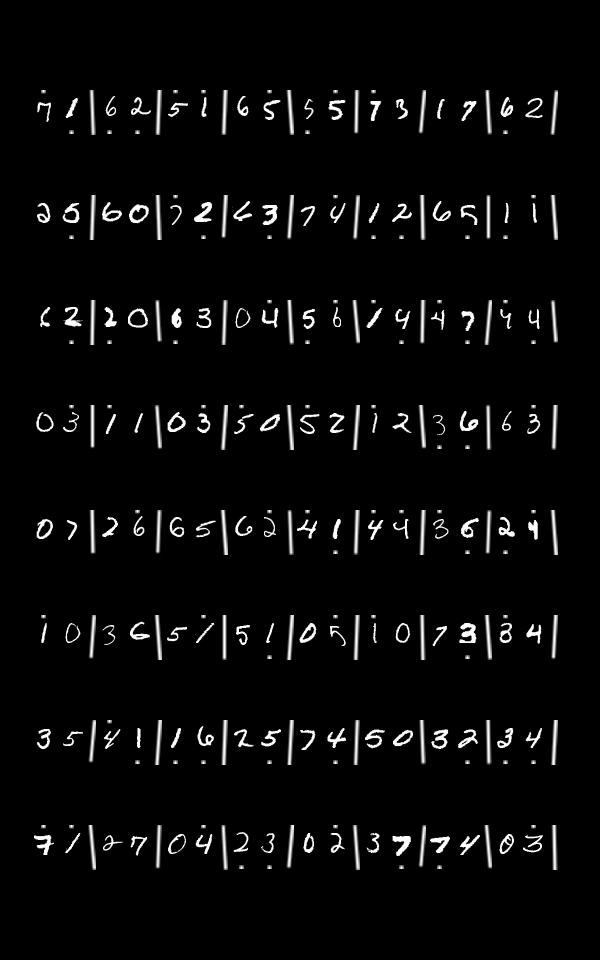 7̇ 1̣ | 6̣ 2̣ | 5̇ 1̇ | 6 5 | 5̣ 5̇ | 7̇ 3 | 1 7 | 6̣ 2 |
2 5̣ | 6 0 | 7̇ 2̣ | 6 3̣ | 7 4̇ | 1̣ 2̣ | 6 5̣ | 1̣ 1̇ |
6 2̣ | 2̇ 0 | 6̣ 3 | 0 4 | 5̣ 6̇ | 1̇ 4̣ | 4̇ 7̣ | 4̇ 4̣ |
0 3̇ | 1̇ 1 | 0 3̇ | 5̇ 0 | 5 2 | 1̇ 2 | 3̣ 6̣ | 6 3̇ |
0 7 | 2 6̇ | 6 5 | 6 2̇ | 4 1̣ | 4̇ 4̇ | 3 6̣ | 2̣ 4̇ |
1̇ 0 | 3 6 | 5 1̇ | 5 1̣ | 0 5̇ | 1̇ 0 | 7 3̣ | 3̇ 4 |
3 5 | 4̇ 1̣ | 1̣ 6̣ | 2 5̣ | 7 4̣ | 5 0 | 3 2̣ | 3̣ 4̣ |
7̇ 1̇ | 2 7 | 0 4̇ | 2̣ 3̣ | 0 2̇ | 3 7̣ | 7̣ 4 | 0 3̇ |